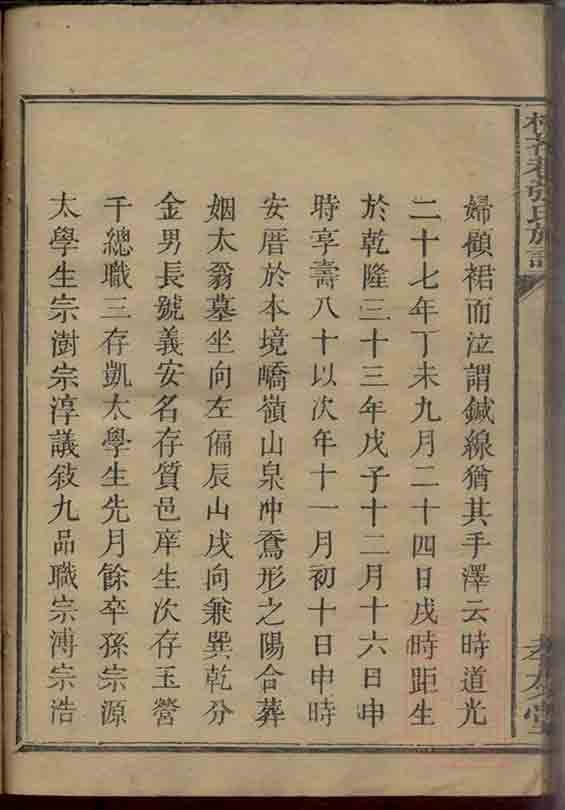 婦顧裙而泣謂鍼線猶其手澤云時道光
二十七年丁未九月二十四日戌時距生
於乾隆三十三年戊子十二月十六日申
時享壽八十以次年十一月初十日申時
安厝於本境嶠嶺山泉冲鴌形之陽合葬
姻太翁墓坐向左偏辰山戌向兼巽乾分
金男長號義安名存質邑庠生次存玉營
千總職三存凱太學生先月餘卒孫宗源
太學生宗澍宗淳議敍九品職宗溥宗浩
張氏族譜
堂